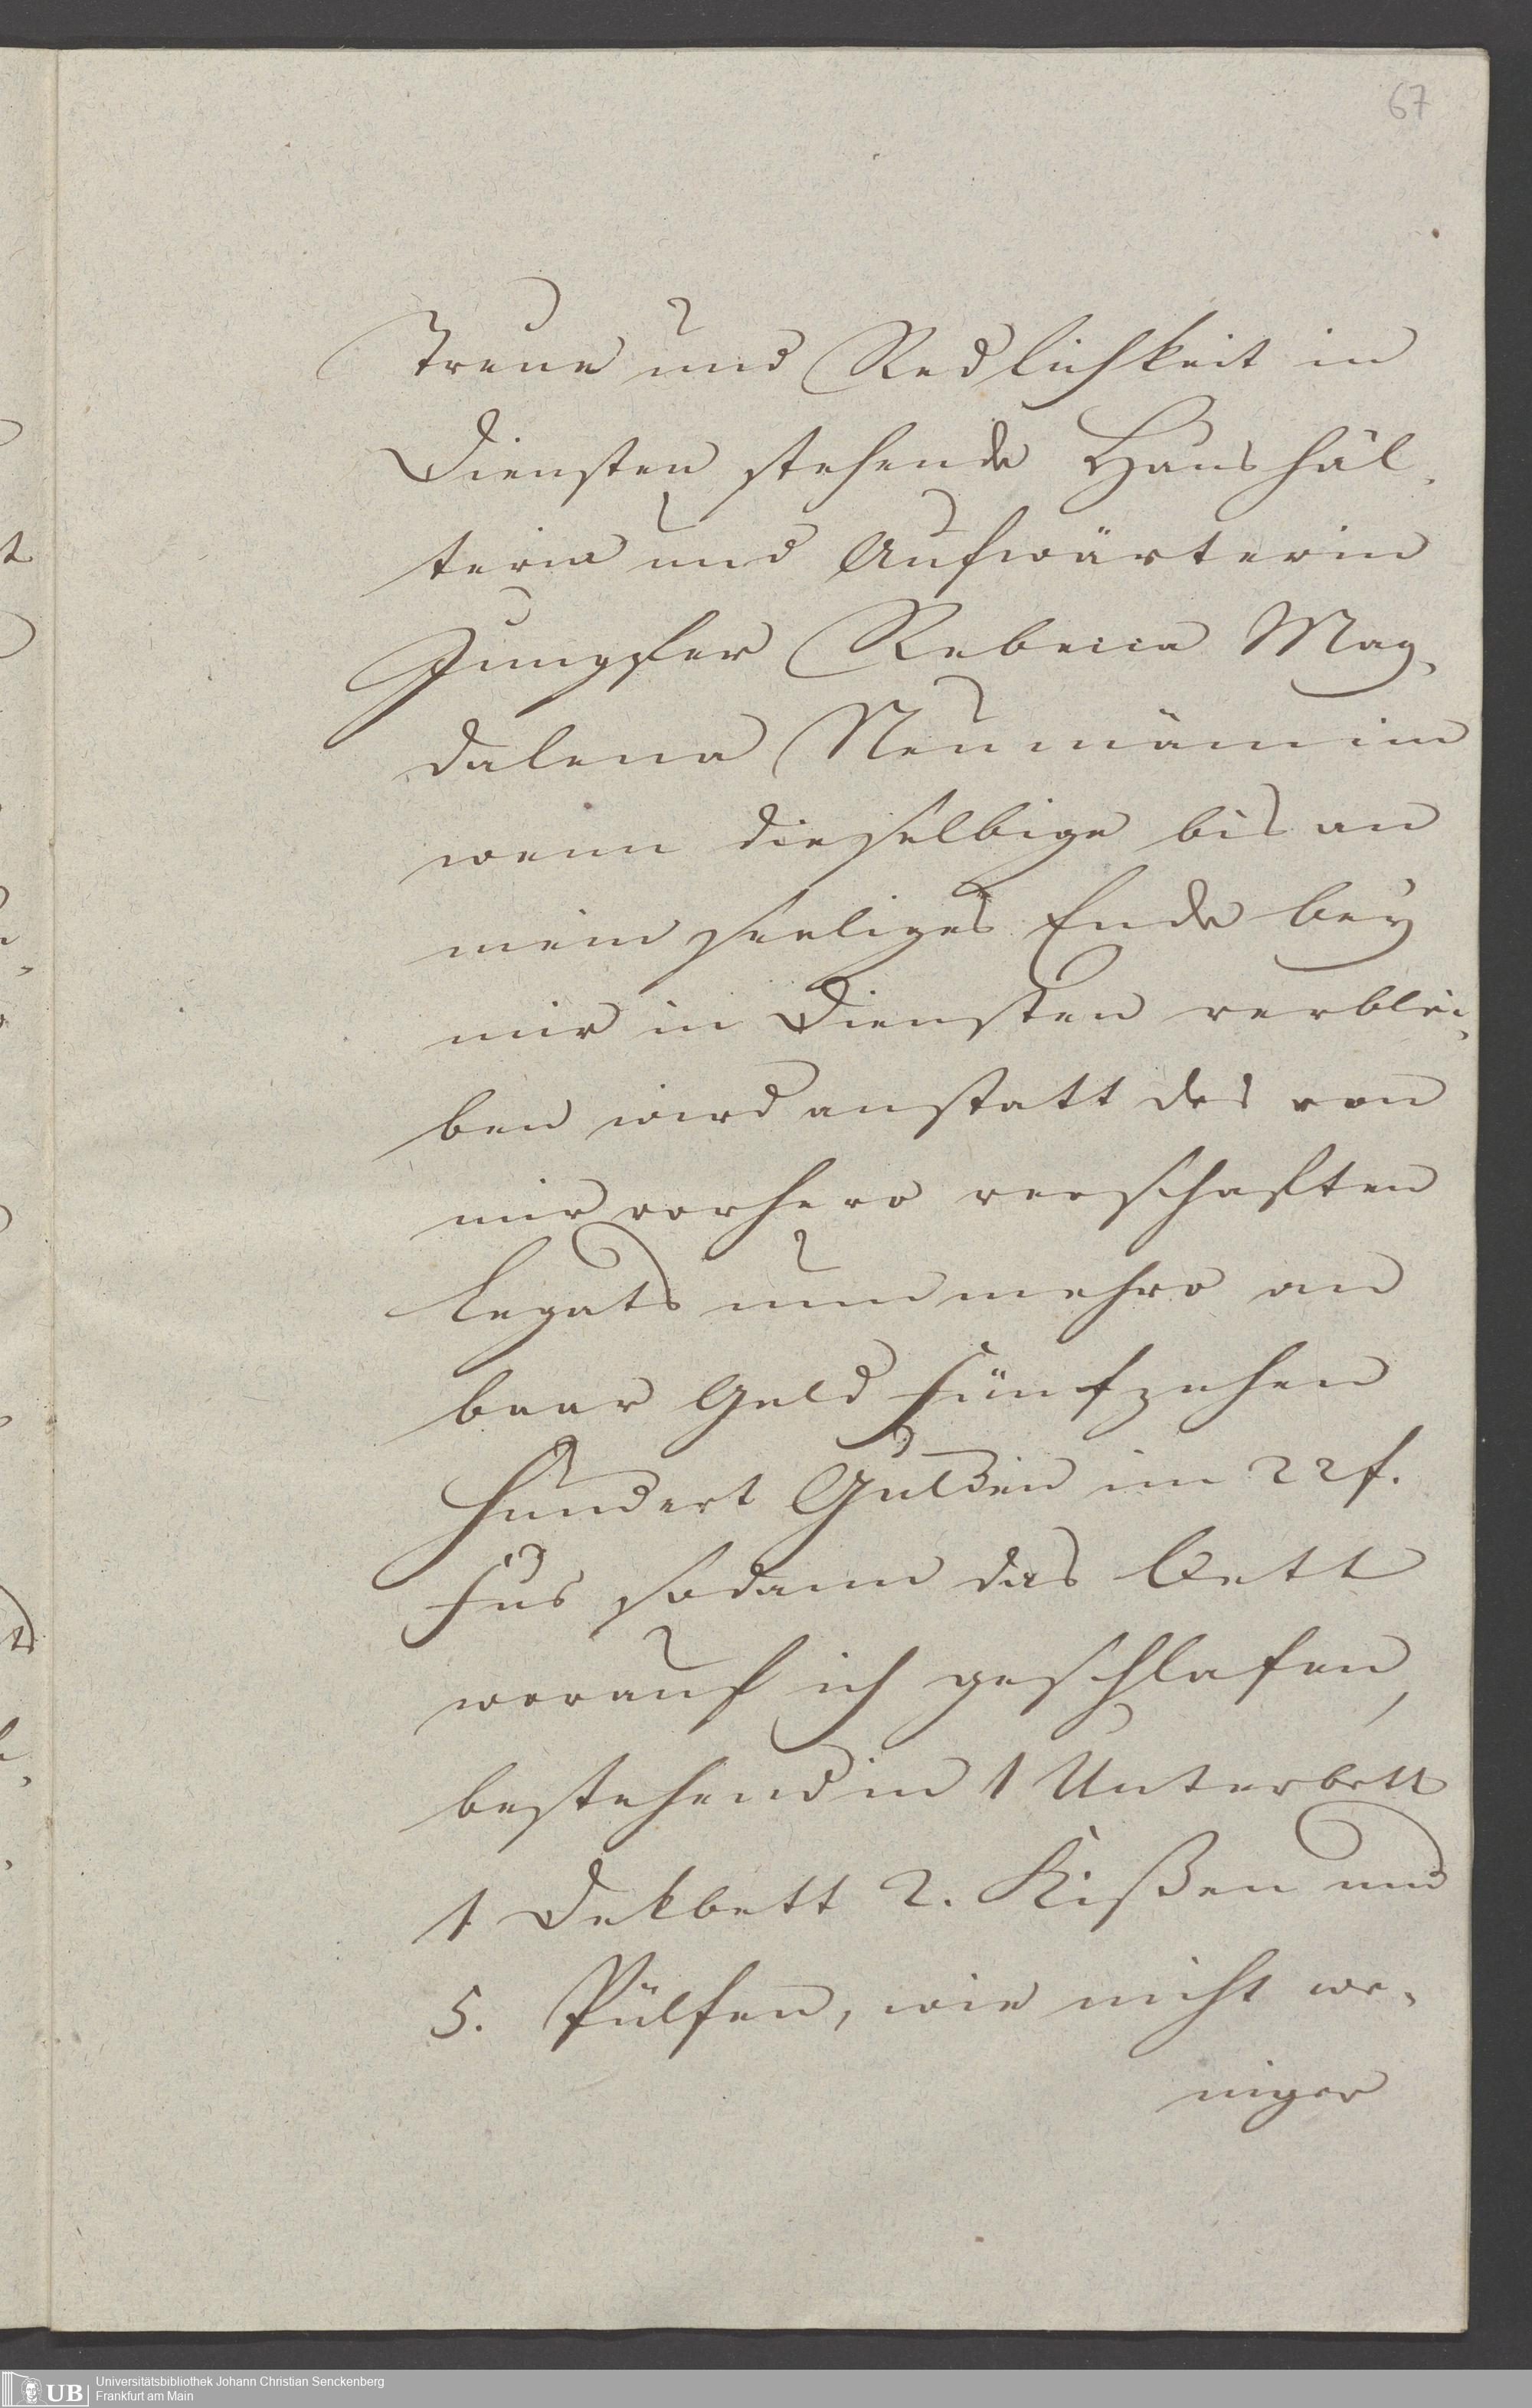 67
Treue und Redlichkeit in
Diensten stehende Haushäl-
terin und Aufwärterin
Jungfer Rebecca Mag-
dalena Neumännin
wenn dieselbige bis an
mein seeliges Ende bey
mir in Diensten verblei-
ben wird anstatt des von
mir vorhero verschaften
Legats nunmehro an
baar Geld fünfzehen
hundert Gulden im 22 f.
Fus sodann das Bett
worauf ich geschlafen,
bestehend in 1 Unterbett
1 Dekbett 2. Kißen und
5. Pülfen, wie nicht we-
niger
UB
Universitätsbibliothek Johann Christian Senckenberg
Frankfurt am Main